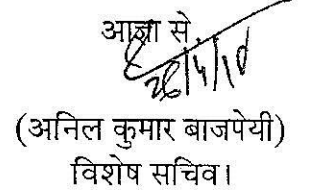 आज्ञा से
26/4/18
(अनिल कुमार बाजपेयी)
विशेष सचिव।